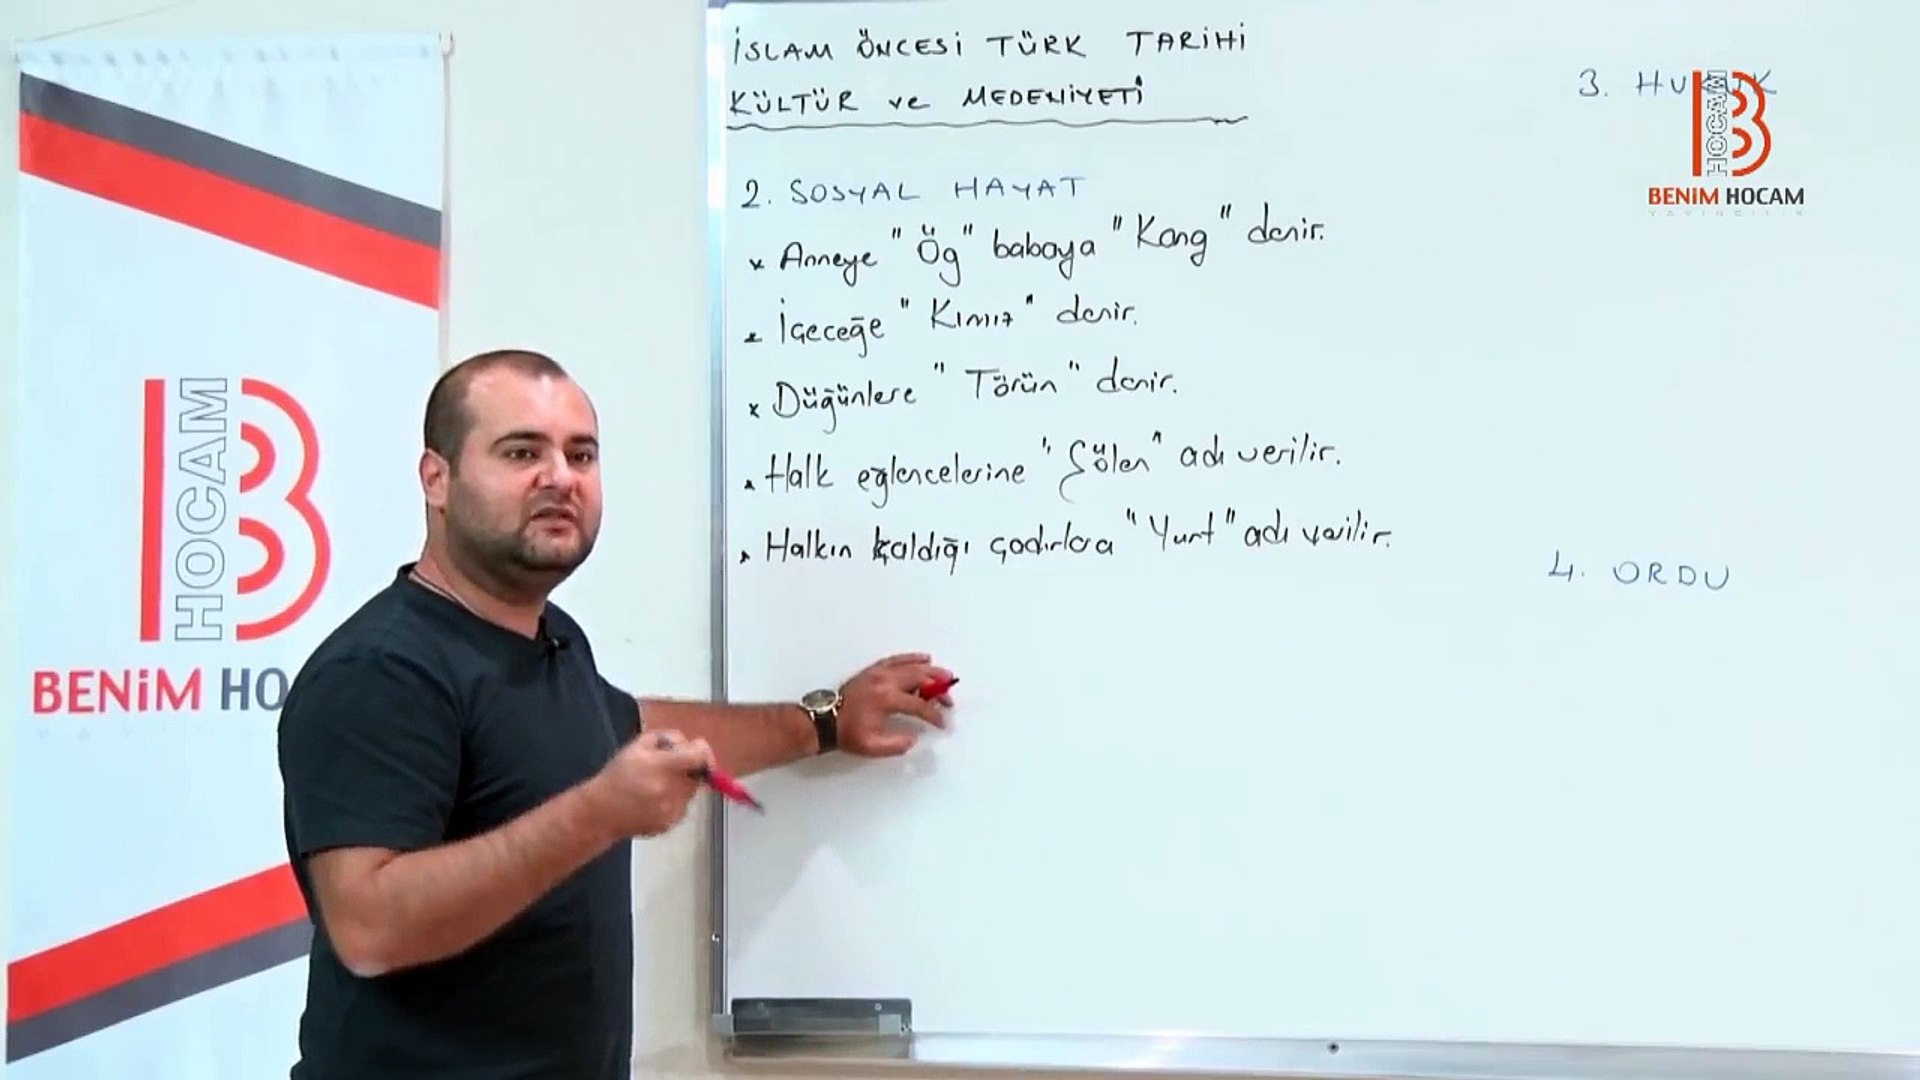 İSLAM ÖNCESİ TÜRK TARİHİ
KÜLTÜR ve MEDENİYETİ
2. SOSYAL HAYAT
x Anneye "Ög" babaya "Kang" denir.
. İçeceğe "Kımız" denir.
x Düğünlere "Törün" denir.
. Halk eğlencelerine "Şölen" adı verilir.
. Halkın kaldığı çadırlara "Yurt" adı verilir.
3. HUKUK
4. ORDU
HOCAM
BENİM HOCAM
YAYINCILIK
HOCAM
BENİM HO